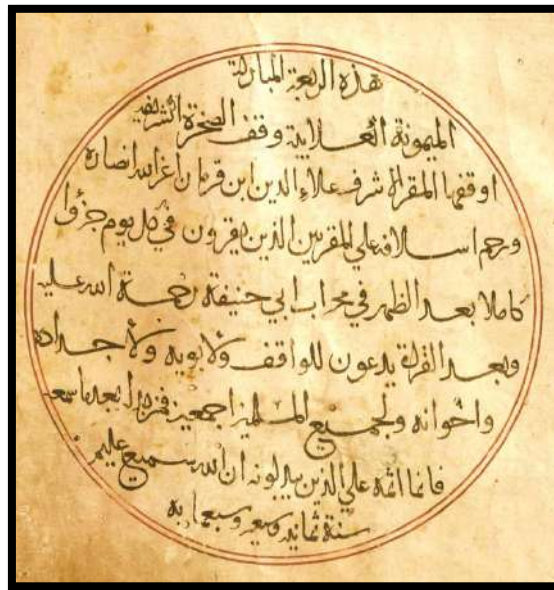 هذه الربعة المباركة
الميمونة العلايية وقف الصخرة الشريفة
اوقفها المقر الاشرف علاء الدين ابن قرمان اعز الله انصاره
ورحم اسلافه علي المقريين الذين يقرون في كل يوم جزؤا
كاملا بعد الظهر في محراب ابي حنيفة رحمة الله عليه
وبعد القراة يدعون للواقف ولابويه ولاجداده
واخوانه ولجميع المسلمين اجمعين فمن بدله بعد ما سمعه
فانما اثمه علي الذين يبدلونه ان الله سميع عليم
سنة ثمانية وسبعماية